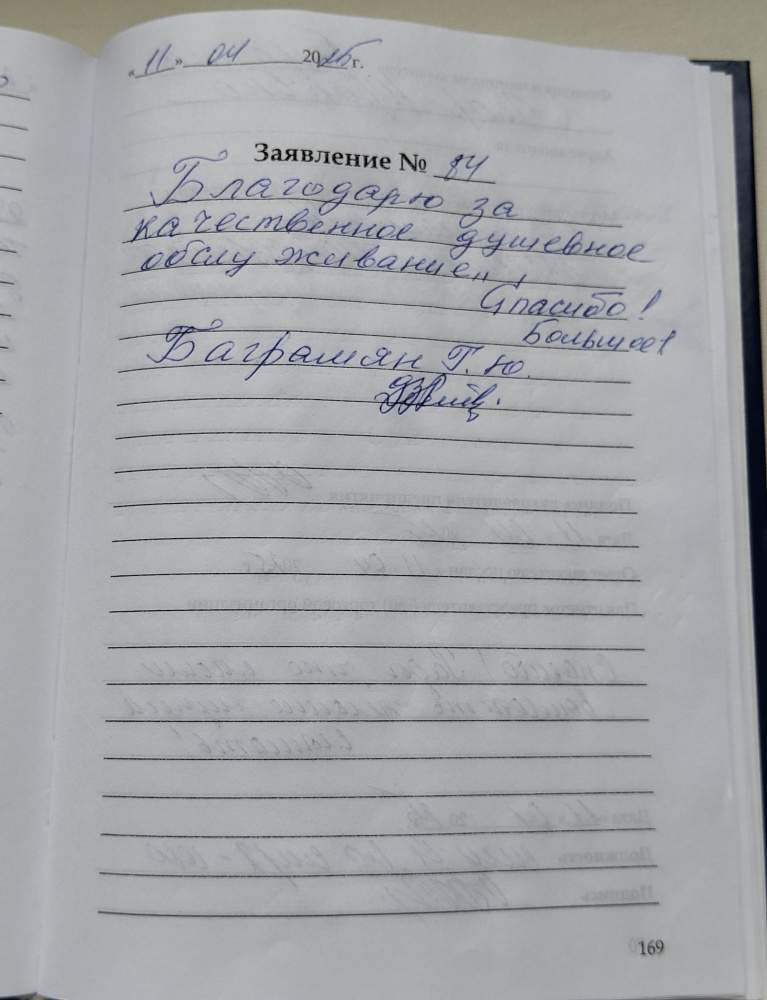 «11» 04 2025 г.
Заявление № 84
Благодарю за
качественное душевное
обслуживание,, ,
Спасибо!
Большое!
Баграмян Г. Ю.
169